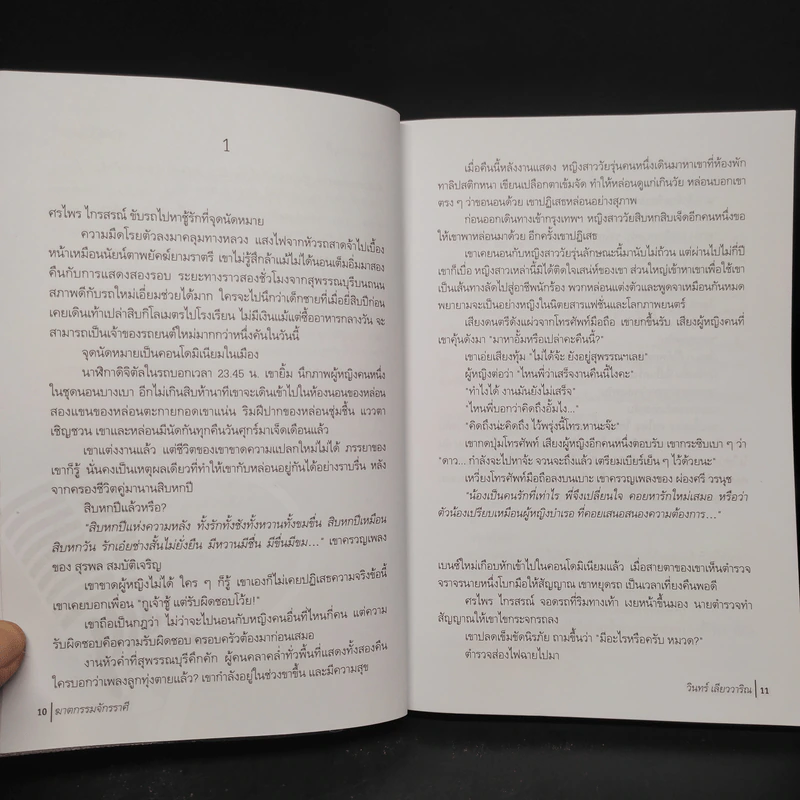 1
ศรไพร ไกรสรณ์ ขับรถไปหาชู้รักที่จุดนัดหมาย
ความมืดโรยตัวลงมาคลุมทางหลวง แสงไฟจากหัวรถสาดจ้าไปเบื้อง
หน้าเหมือนนัยน์ตาพยัคฆ์ยามราตรี เขาไม่รู้สึกล้าแม้ไม่ได้นอนเต็มอิ่มมาสอง
คืนกับการแสดงสองรอบ ระยะทางราวสองชั่วโมงจากสุพรรณบุรีบนถนน
สภาพดีกับรถใหม่เอี่ยมช่วยได้มาก ใครจะไปนึกว่าเด็กชายที่เมื่อยี่สิบปีก่อน
เคยเดินเท้าเปล่าสิบกิโลเมตรไปโรงเรียน ไม่มีเงินแม้แต่ซื้ออาหารกลางวัน จะ
สามารถเป็นเจ้าของรถยนต์ใหม่มากกว่าหนึ่งคันในวันนี้
จุดนัดหมายเป็นคอนโดมิเนียมในเมือง
นาฬิกาดิจิตัลในรถบอกเวลา 23.45 น. เขายิ้ม นึกภาพผู้หญิงคนหนึ่ง
ในชุดนอนบางเบา อีกไม่เกินสิบห้านาทีเขาจะเดินเข้าไปในห้องนอนของหล่อน
สองแขนของหล่อนตะกายกอดเขาแน่น ริมฝีปากของหล่อนชุ่มชื้น แววตา
เชิญชวน เขาและหล่อนมีนัดกันทุกคืนวันศุกร์มาเจ็ดเดือนแล้ว
เขาแต่งงานแล้ว แต่ชีวิตของเขาขาดความแปลกใหม่ไม่ได้ ภรรยาของ
เขาก็รู้ นั่นคงเป็นเหตุผลเดียวที่ทำให้เขากับหล่อนอยู่กันได้อย่างราบรื่น หลัง
จากครองชีวิตคู่มานานสิบหกปี
สิบหกปีแล้วหรือ?
"สิบหกปีแห่งความหลัง ทั้งรักทั้งชังทั้งหวานทั้งขมขื่น สิบหกปีเหมือน
สิบหกวัน รักเอ๋ยช่างสั้นไม่ยั่งยืน มีหวานมีชื่น มีขื่นมีขม..." เขาครวญเพลง
ของ สุรพล สมบัติเจริญ
เขาขาดผู้หญิงไม่ได้ ใคร ๆ ก็รู้ เขาเองก็ไม่เคยปฏิเสธความจริงข้อนี้
เขาเคยบอกเพื่อน "กูเจ้าชู้ แต่รับผิดชอบโว้ย!"
เขาถือเป็นกฎว่า ไม่ว่าจะไปนอนกับหญิงคนอื่นที่ไหนกี่คน แต่ความ
รับผิดชอบคือความรับผิดชอบ ครอบครัวต้องมาก่อนเสมอ
งานหัวค่ำที่สุพรรณบุรีคึกคัก ผู้คนคลาคล่ำทั่วพื้นที่แสดงทั้งสองคืน
ใครบอกว่าเพลงลูกทุ่งตายแล้ว? เขากำลังอยู่ในช่วงขาขึ้น และมีความสุข
10 ฆาตกรรมจักรราศี
เมื่อคืนนี้หลังงานแสดง หญิงสาววัยรุ่นคนหนึ่งเดินมาหาเขาที่ห้องพัก
ทาลิปสติกหนา เขียนเปลือกตาเข้มจัด ทำให้หล่อนดูแก่เกินวัย หล่อนบอกเขา
ตรง ๆ ว่าขอนอนด้วย เขาปฏิเสธหล่อนอย่างสุภาพ
ก่อนออกเดินทางเข้ากรุงเทพฯ หญิงสาววัยสิบหกสิบเจ็ดอีกคนหนึ่งขอ
ให้เขาพาหล่อนมาด้วย อีกครั้งเขาปฏิเสธ
เขาเคยนอนกับหญิงสาววัยรุ่นลักษณะนี้มานับไม่ถ้วน แต่ผ่านไปไม่กี่ปี
เขาก็เบื่อ หญิงสาวเหล่านี้มิได้ติดใจเสน่ห์ของเขา ส่วนใหญ่เข้าหาเขาเพื่อใช้เขา
เป็นเส้นทางลัดไปสู่อาชีพนักร้อง พวกหล่อนแต่งตัวและพูดจาเหมือนกันหมด
พยายามจะเป็นอย่างหญิงในนิตยสารแฟชั่นและโลกภาพยนตร์
เสียงดนตรีดังแผ่วจากโทรศัพท์มือถือ เขายกขึ้นรับ เสียงผู้หญิงคนที่
เขาคุ้นดังมา "มาหาอั้มหรือเปล่าคะคืนนี้?"
เขาเอ่ยเสียงทุ้ม "ไม่ได้จ้ะ ยังอยู่สุพรรณฯเลย"
ผู้หญิงต่อว่า "ไหนพี่ว่าเสร็จงานคืนนี้ไงคะ"
"ทำไงได้ งานมันยังไม่เสร็จ"
"ไหนพี่บอกว่าคิดถึงอั้มไง..."
"คิดถึงน่ะคิดถึง ไว้พรุ่งนี้โทร.หานะจ๊ะ"
เขากดปุ่มโทรศัพท์ เสียงผู้หญิงอีกคนหนึ่งตอบรับ เขากระซิบเบา ๆ ว่า
"ดาว... กำลังจะไปหาจ้ะ จวนจะถึงแล้ว เตรียมเบียร์เย็น ๆ ไว้ด้วยนะ"
เหวี่ยงโทรศัพท์มือถือลงบนเบาะ เขาครวญเพลงของ ผ่องศรี วรนุช
"น้องเป็นคนรักที่เท่าไร พี่จึงเปลี่ยนใจ คอยหารักใหม่เสมอ หรือว่า
ตัวน้องเปรียบเหมือนผู้หญิงบำเรอ ที่คอยเสนอสนองความต้องการ..."
เบนซ์ใหม่เกือบหักเข้าไปในคอนโดมิเนียมแล้ว เมื่อสายตาของเขาเห็นตำรวจ
จราจรนายหนึ่งโบกมือให้สัญญาณ เขาหยุดรถ เป็นเวลาเที่ยงคืนพอดี
ศรไพร ไกรสรณ์ จอดรถที่ริมทางเท้า เงยหน้าขึ้นมอง นายตำรวจทำ
สัญญาณให้เขาไขกระจกรถลง
เขาปลดเข็มขัดนิรภัย ถามขึ้นว่า "มีอะไรหรือครับ หมวด?"
ตำรวจส่องไฟฉายไปมา
วินทร์ เลียววาริณ 11